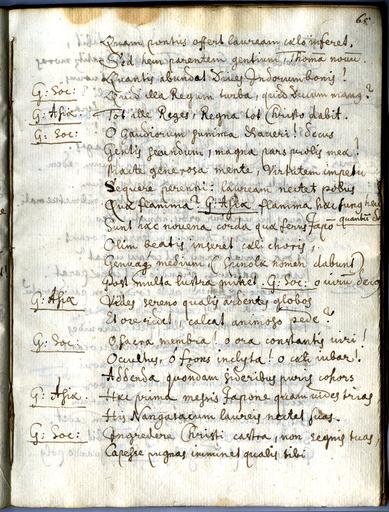 65
Quam pontis offert lauream cælo inferet.
Sed hem parentem gentium, Thoma novu.
Quantis abundat Dives Indorum bonis!
G: Soc: Quid illa Regum turba, quid Divum
G: Asia Tot ille Reges, Regna tot Christo dabit.
G: Soc: O Gaudiorum summa Xaveri! Decus
Gentis secundum, magna pars prolis mea!
Macte generosa mente, Virtutem impetu
Sequere perenni: lauream nectet
Quæ flamma? G: Asia flamma hæc
Sunt hæc novena corda quæ feris Japo
Olim beatis inseret cæli choris.
medium (Spinola nomen dabunt)
Post multa lustra mittet. G: Soc: o virum
G: Asia Vides sereno qualis ardentes globos
Et ore ridet, calcat animoso pede?
G: Soc: O sacra membra! o ora constantis viri!
Occultus, o frons inclyta! o cæli iubar!
Addenda quondam sideribus puris cohors
G: Asia Hæc prima messis Japona quam vides trias
His Nangasacum laureis nectet suas.
G: Soc: Ingredere Christi castra, non segnis tuas
Capesse pugnas imminet qualis tibi